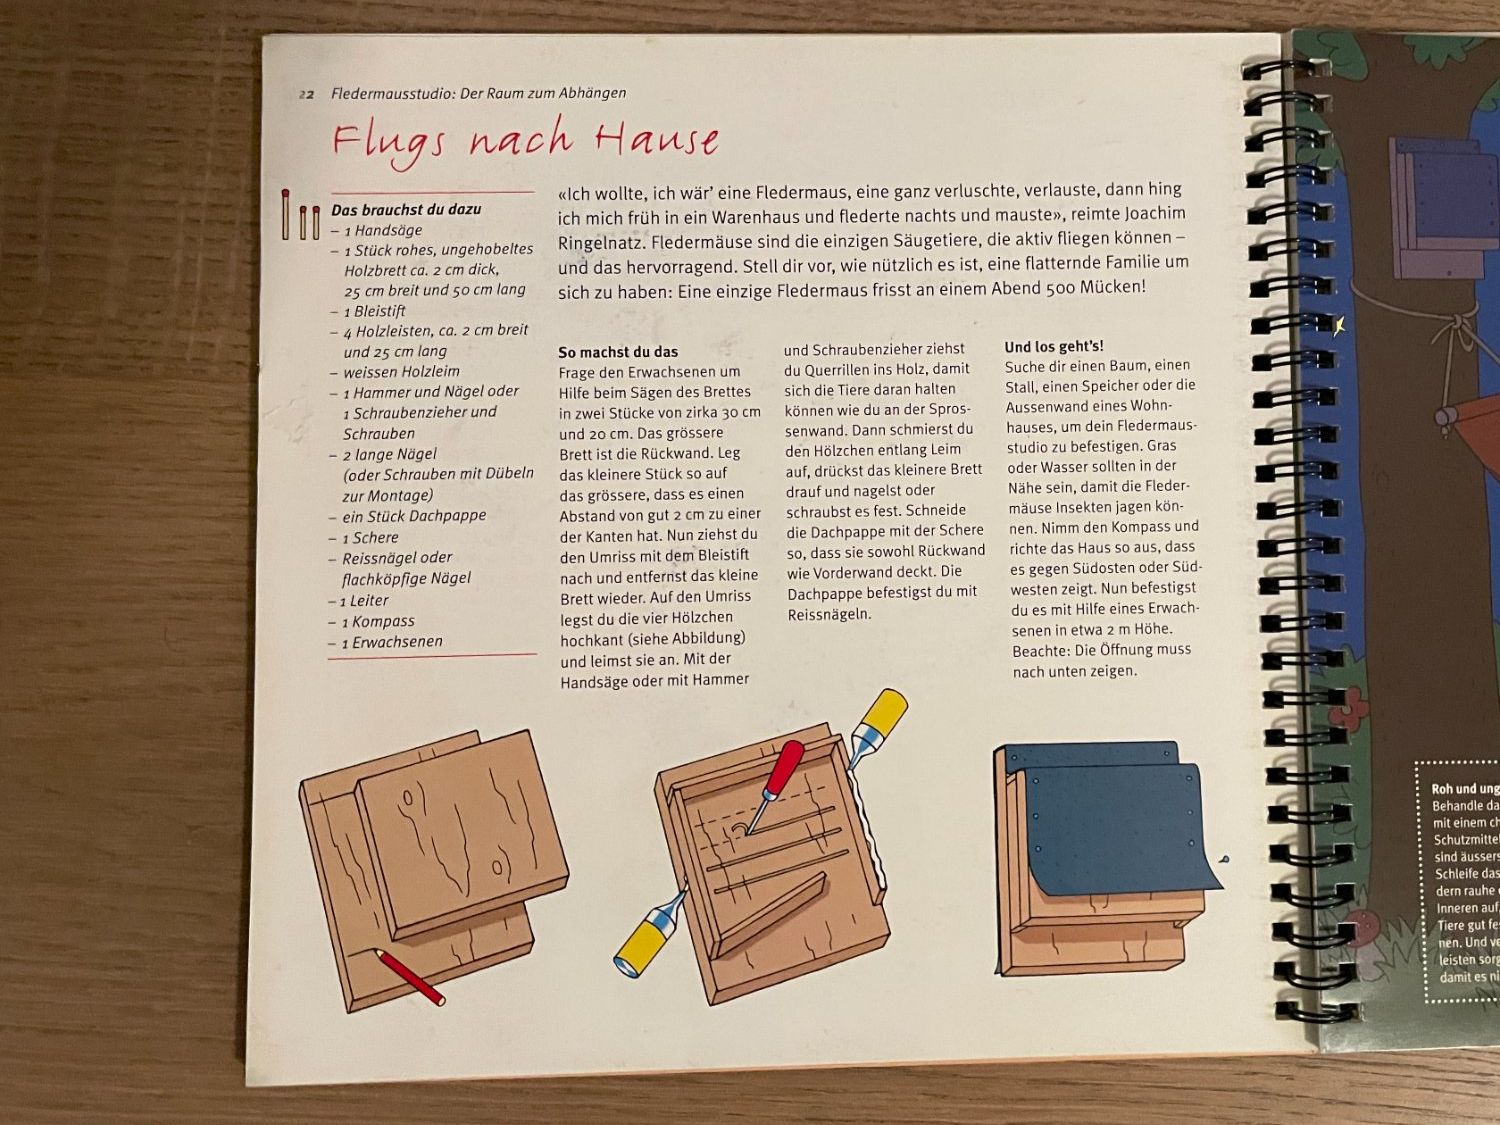 22 Fledermausstudio: Der Raum zum Abhängen
Flugs nach Hause
Das brauchst du dazu
– 1 Handsäge
– 1 Stück rohes, ungehobeltes
Holzbrett ca. 2 cm dick,
25 cm breit und 50 cm lang
– 1 Bleistift
– 4 Holzleisten, ca. 2 cm breit
und 25 cm lang
– weissen Holzleim
– 1 Hammer und Nägel oder
1 Schraubenzieher und
Schrauben
– 2 lange Nägel
(oder Schrauben mit Dübeln
zur Montage)
– ein Stück Dachpappe
– 1 Schere
– Reissnägel oder
flachköpfige Nägel
– 1 Leiter
– 1 Kompass
– 1 Erwachsenen
«Ich wollte, ich wär’ eine Fledermaus, eine ganz verluschte, verlauste, dann hing
ich mich früh in ein Warenhaus und flederte nachts und mauste», reimte Joachim
Ringelnatz. Fledermäuse sind die einzigen Säugetiere, die aktiv fliegen können –
und das hervorragend. Stell dir vor, wie nützlich es ist, eine flatternde Familie um
sich zu haben: Eine einzige Fledermaus frisst an einem Abend 500 Mücken!
So machst du das
Frage den Erwachsenen um
Hilfe beim Sägen des Brettes
in zwei Stücke von zirka 30 cm
und 20 cm. Das grössere
Brett ist die Rückwand. Leg
das kleinere Stück so auf
das grössere, dass es einen
Abstand von gut 2 cm zu einer
der Kanten hat. Nun ziehst du
den Umriss mit dem Bleistift
nach und entfernst das kleine
Brett wieder. Auf den Umriss
legst du die vier Hölzchen
hochkant (siehe Abbildung)
und leimst sie an. Mit der
Handsäge oder mit Hammer
und Schraubenzieher ziehst
du Querrillen ins Holz, damit
sich die Tiere daran halten
können wie du an der Spros-
senwand. Dann schmierst du
den Hölzchen entlang Leim
auf, drückst das kleinere Brett
drauf und nagelst oder
schraubst es fest. Schneide
die Dachpappe mit der Schere
so, dass sie sowohl Rückwand
wie Vorderwand deckt. Die
Dachpappe befestigst du mit
Reissnägeln.
Und los geht’s!
Suche dir einen Baum, einen
Stall, einen Speicher oder die
Aussenwand eines Wohn-
hauses, um dein Fledermaus-
studio zu befestigen. Gras
oder Wasser sollten in der
Nähe sein, damit die Fleder-
mäuse Insekten jagen kön-
nen. Nimm den Kompass und
richte das Haus so aus, dass
es gegen Südosten oder Süd-
westen zeigt. Nun befestigst
du es mit Hilfe eines Erwach-
senen in etwa 2 m Höhe.
Beachte: Die Öffnung muss
nach unten zeigen.
Roh und ung
Behandle da
mit einem ch
Schutzmittel
sind äussers
Schleife das
dern rauhe
Inneren auf,
Tiere gut fe
nen. Und ve
leisten sorg
damit es ni